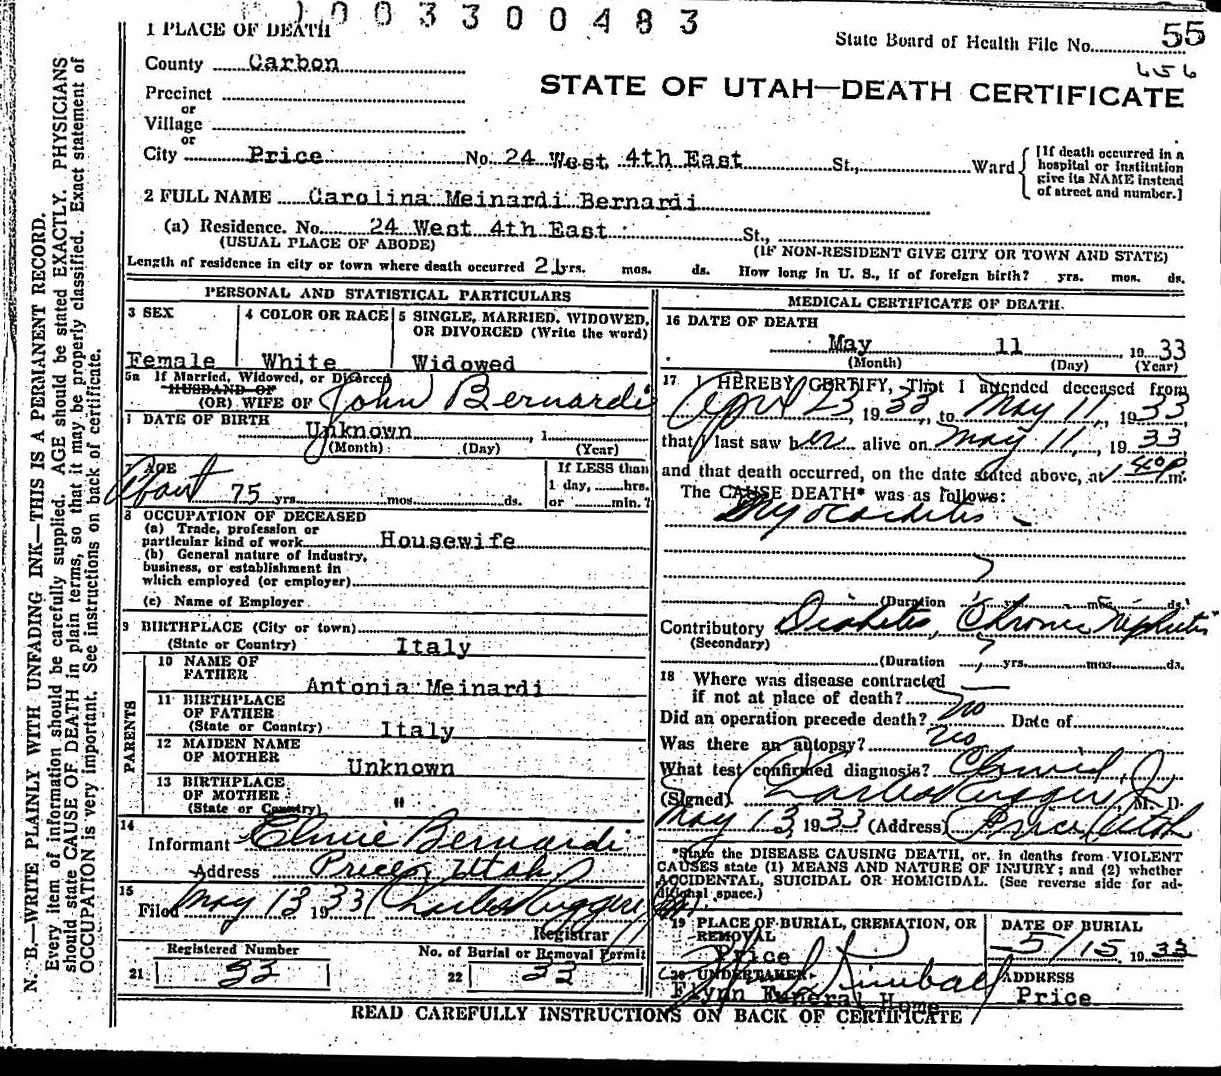 1003300483
1 PLACE OF DEATH
State Board of Health File No. 55
656
County Carbon
STATE OF UTAH—DEATH CERTIFICATE
Precinct
or
Village
or
City Price No. 24 West 4th East St., Ward
[If death occurred in a hospital or institution give its NAME instead of street and number.]
2 FULL NAME Carolina Meinardi Bernardi
(a) Residence. No. 24 West 4th East St.,
(USUAL PLACE OF ABODE) (IF NON-RESIDENT GIVE CITY OR TOWN AND STATE)
Length of residence in city or town where death occurred 21 yrs. mos. ds. How long in U. S., if of foreign birth? yrs. mos. ds.
PERSONAL AND STATISTICAL PARTICULARS
3 SEX
Female
4 COLOR OR RACE
White
5 SINGLE, MARRIED, WIDOWED, OR DIVORCED (Write the word)
Widowed
5a If Married, Widowed, or Divorced
HUSBAND OF
(OR) WIFE OF John Bernardi
DATE OF BIRTH
Unknown , 1
(Month) (Day) (Year)
7 AGE
About 75 yrs. mos. ds.
If LESS than
1 day, hrs.
or min.?
8 OCCUPATION OF DECEASED
(a) Trade, profession or
particular kind of work Housewife
(b) General nature of industry,
business, or establishment in
which employed (or employer)
(c) Name of Employer
9 BIRTHPLACE (City or town)
(State or Country) Italy
PARENTS
10 NAME OF
FATHER
Antonia Meinardi
11 BIRTHPLACE
OF FATHER
(State or Country) Italy
12 MAIDEN NAME
OF MOTHER Unknown
13 BIRTHPLACE
OF MOTHER
(State or Country) "
14
Informant Bernardi
Address Price, Utah
15
Filed May 13 1933 Charles Ruggeri
Registrar
Registered Number
21 33
No. of Burial or Removal Permit
22 33
MEDICAL CERTIFICATE OF DEATH.
16 DATE OF DEATH
May 11 1933
(Month) (Day) (Year)
17 I HEREBY CERTIFY, That I attended deceased from
April 23, 1933, to May 11, 1933
that I last saw her alive on May 11, 1933
and that death occurred, on the date stated above, at 1 40 p m.
The CAUSE DEATH* was as follows:
Myocarditis
?
(Duration yrs. mos. ds.
Contributory Diabetis, Chronic Nephritis
(Secondary)
?
(Duration yrs. mos. ds.
18 Where was disease contracted
if not at place of death?
Did an operation precede death? no Date of
Was there an autopsy? no
What test confirmed diagnosis? Clinical
(Signed) Charles Ruggeri, M. D.
May 13, 1933 (Address) Price, Utah
*State the DISEASE CAUSING DEATH, or, in deaths from VIOLENT
CAUSES state (1) MEANS AND NATURE OF INJURY; and (2) whether
ACCIDENTAL, SUICIDAL OR HOMICIDAL. (See reverse side for ad-
ditional space.)
19 PLACE OF BURIAL, CREMATION, OR
REMOVAL
Price
DATE OF BURIAL
5/15 1933
20 UNDERTAKER
Flynn Funeral Home
ADDRESS
Price
READ CAREFULLY INSTRUCTIONS ON BACK OF CERTIFICATE
N. B.—WRITE PLAINLY WITH UNFADING INK—THIS IS A PERMANENT RECORD.
Every item of information should be carefully supplied. AGE should be stated EXACTLY. PHYSICIANS
should state CAUSE OF DEATH in plain terms, so that it may be properly classified. Exact statement of
OCCUPATION is very important. See instructions on back of certificate.